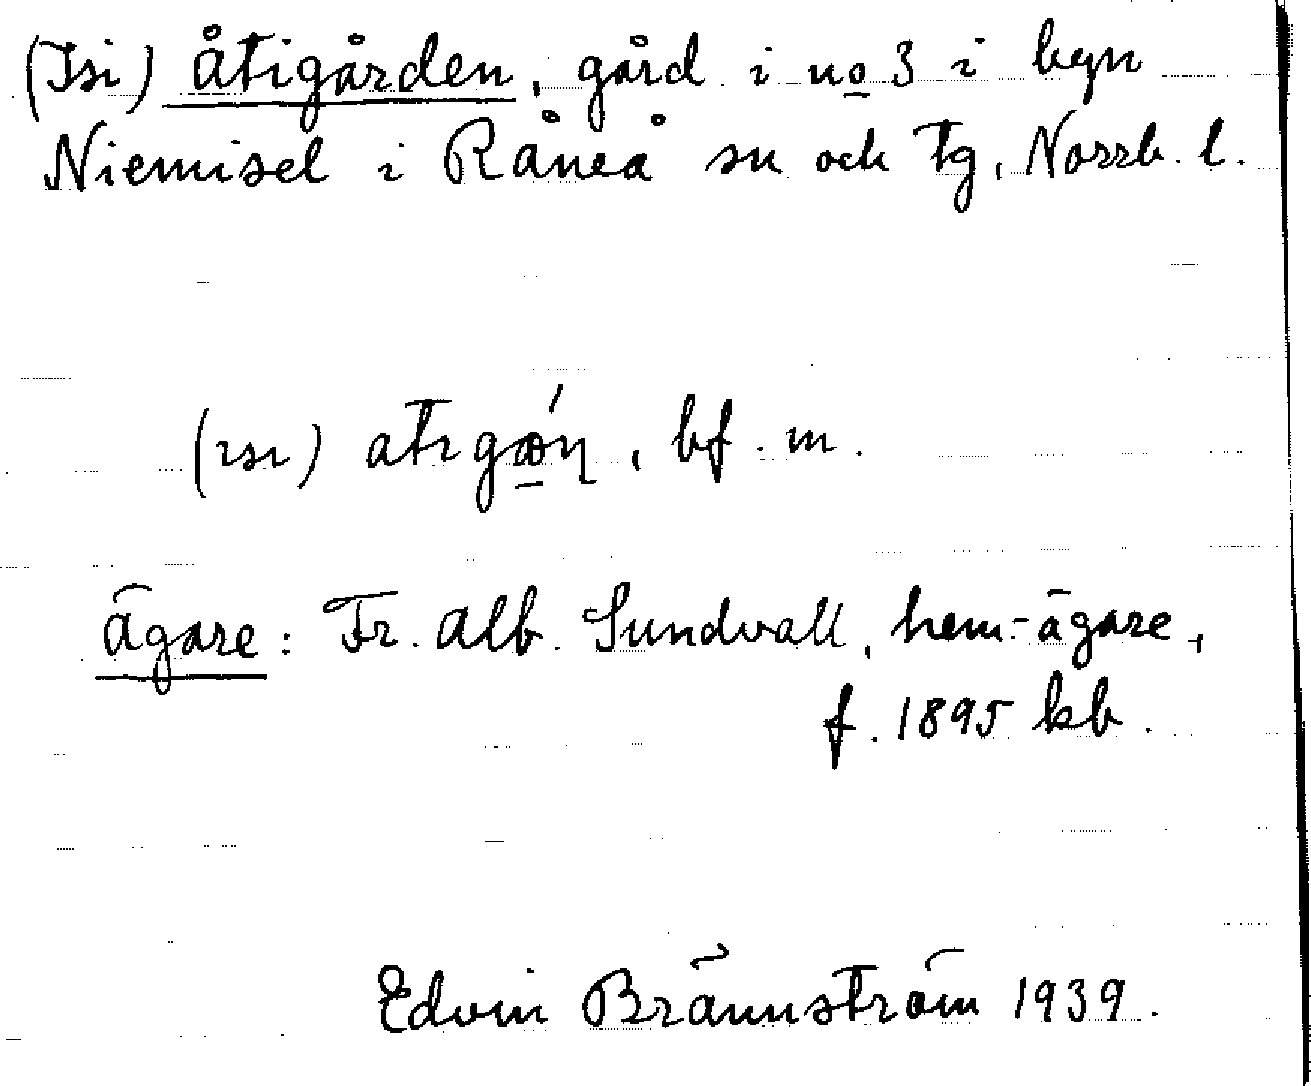 (Isi) åtigården, gård i no 3 i byn
Niemisel i Råneå sn och tg, Norrb. l.
(ısı) atıgǿn, bf. m.
ägare: Fr. Alb. Sundvall, hem.-ägare,
f. 1895 kb.
Edvin Brännström 1939.